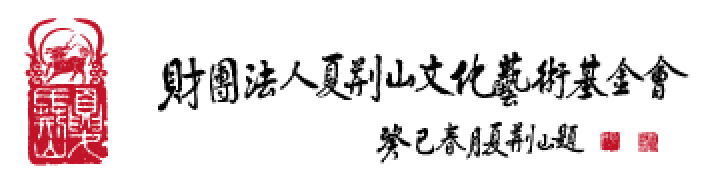 財團法人夏荊山文化藝術基金會
癸巳春月夏荊山題